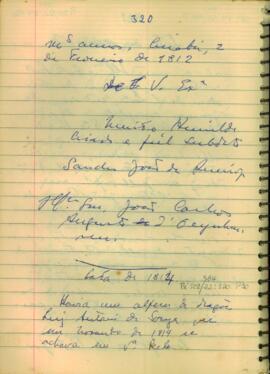 320
mˢ annos, Cuiabá, 2
de Fevereiro de 1812
De V. Exª
Muito Humilde
Criado e fiel subdito
Sancho João de Queiroz
Snr. João Carlos
Augusto d'Oeynhau
sen.
Carta de 1814
384
Havia um alferes de dragões
Luiz Antonio de Souza, que
em novembro de 1814 se
achava em